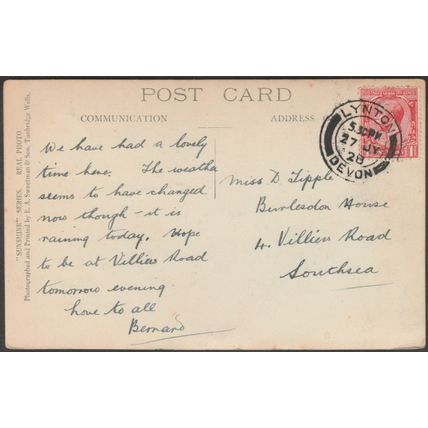 POST CARD
COMMUNICATION
ADDRESS
"SUNSHINE" SERIES. REAL PHOTO
Photographed and Printed by E. A. Sweetman & Son, Tunbridge Wells.
We have had a lovely
time here. The weather
seems to have changed
now though - it is
raining today. Hope
to be at Villiers Road
tomorrow evening
Love to all
Bernard
Miss D. Tipple
Bursledon House
4. Villiers Road
Southsea
LYNTON
5.30PM
27 JY
28
DEVON